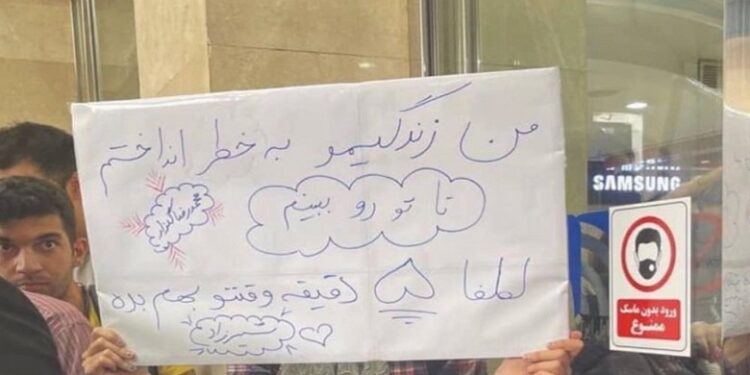 من زندگیمو به خطر انداختم
تا تو رو ببینم
محمدرضا گلزار
لطفا ۵ دقیقه وقتتو بهم بده
SAMSUNG
ورود بدون ماسک
ممنوع